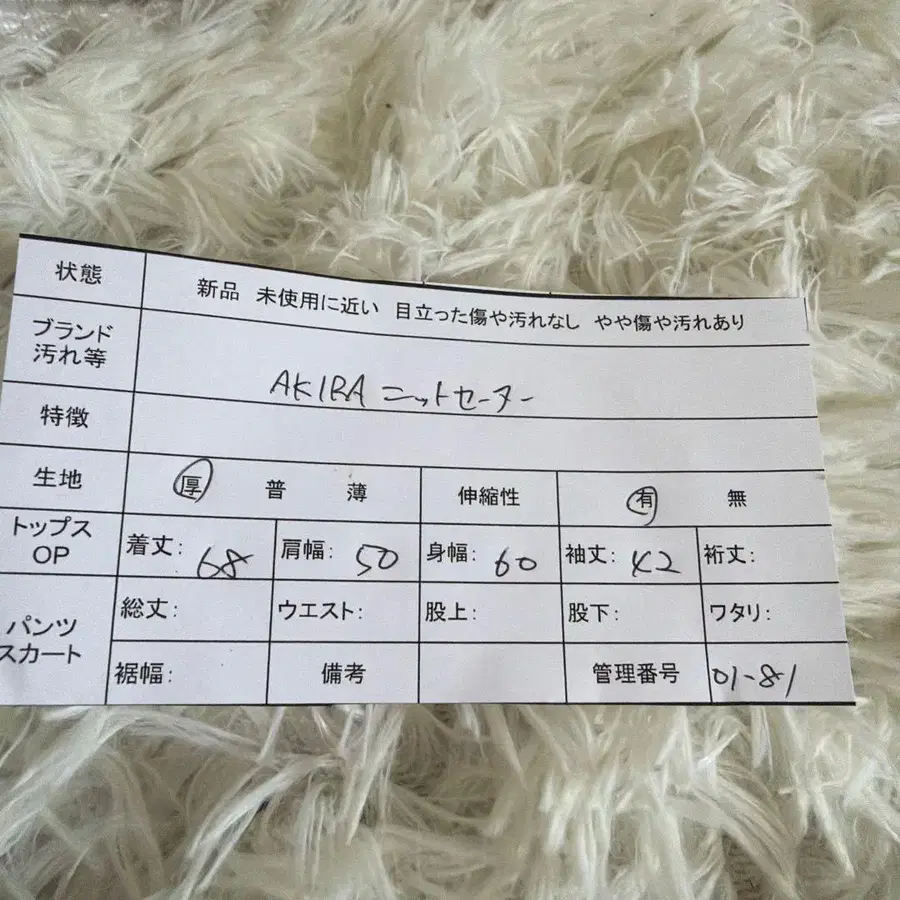 状態 新品 未使用に近い 目立った傷や汚れなし やや傷や汚れあり
ブランド
汚れ等
AKIRA ニットセーター
特徴
生地 厚 普 薄 伸縮性 有 無
トップス
OP
着丈: 68 肩幅: 50 身幅: 60 袖丈: 42 裄丈:
パンツ
スカート
総丈: ウエスト: 股上: 股下: ワタリ:
裾幅: 備考 管理番号 01-81